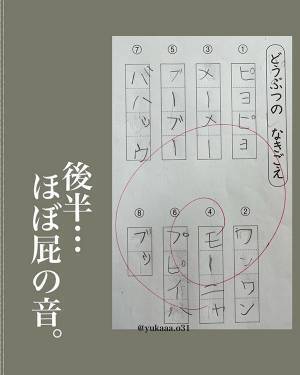 どうぶつの なきごえ
① ピヨピヨ
② ワンワン
③ メーメー
④ モーニャ
⑤ ブーブー
⑥
⑦
⑧ ブッ
後半…
ほぼ屁の音。
@yukaaa.o31